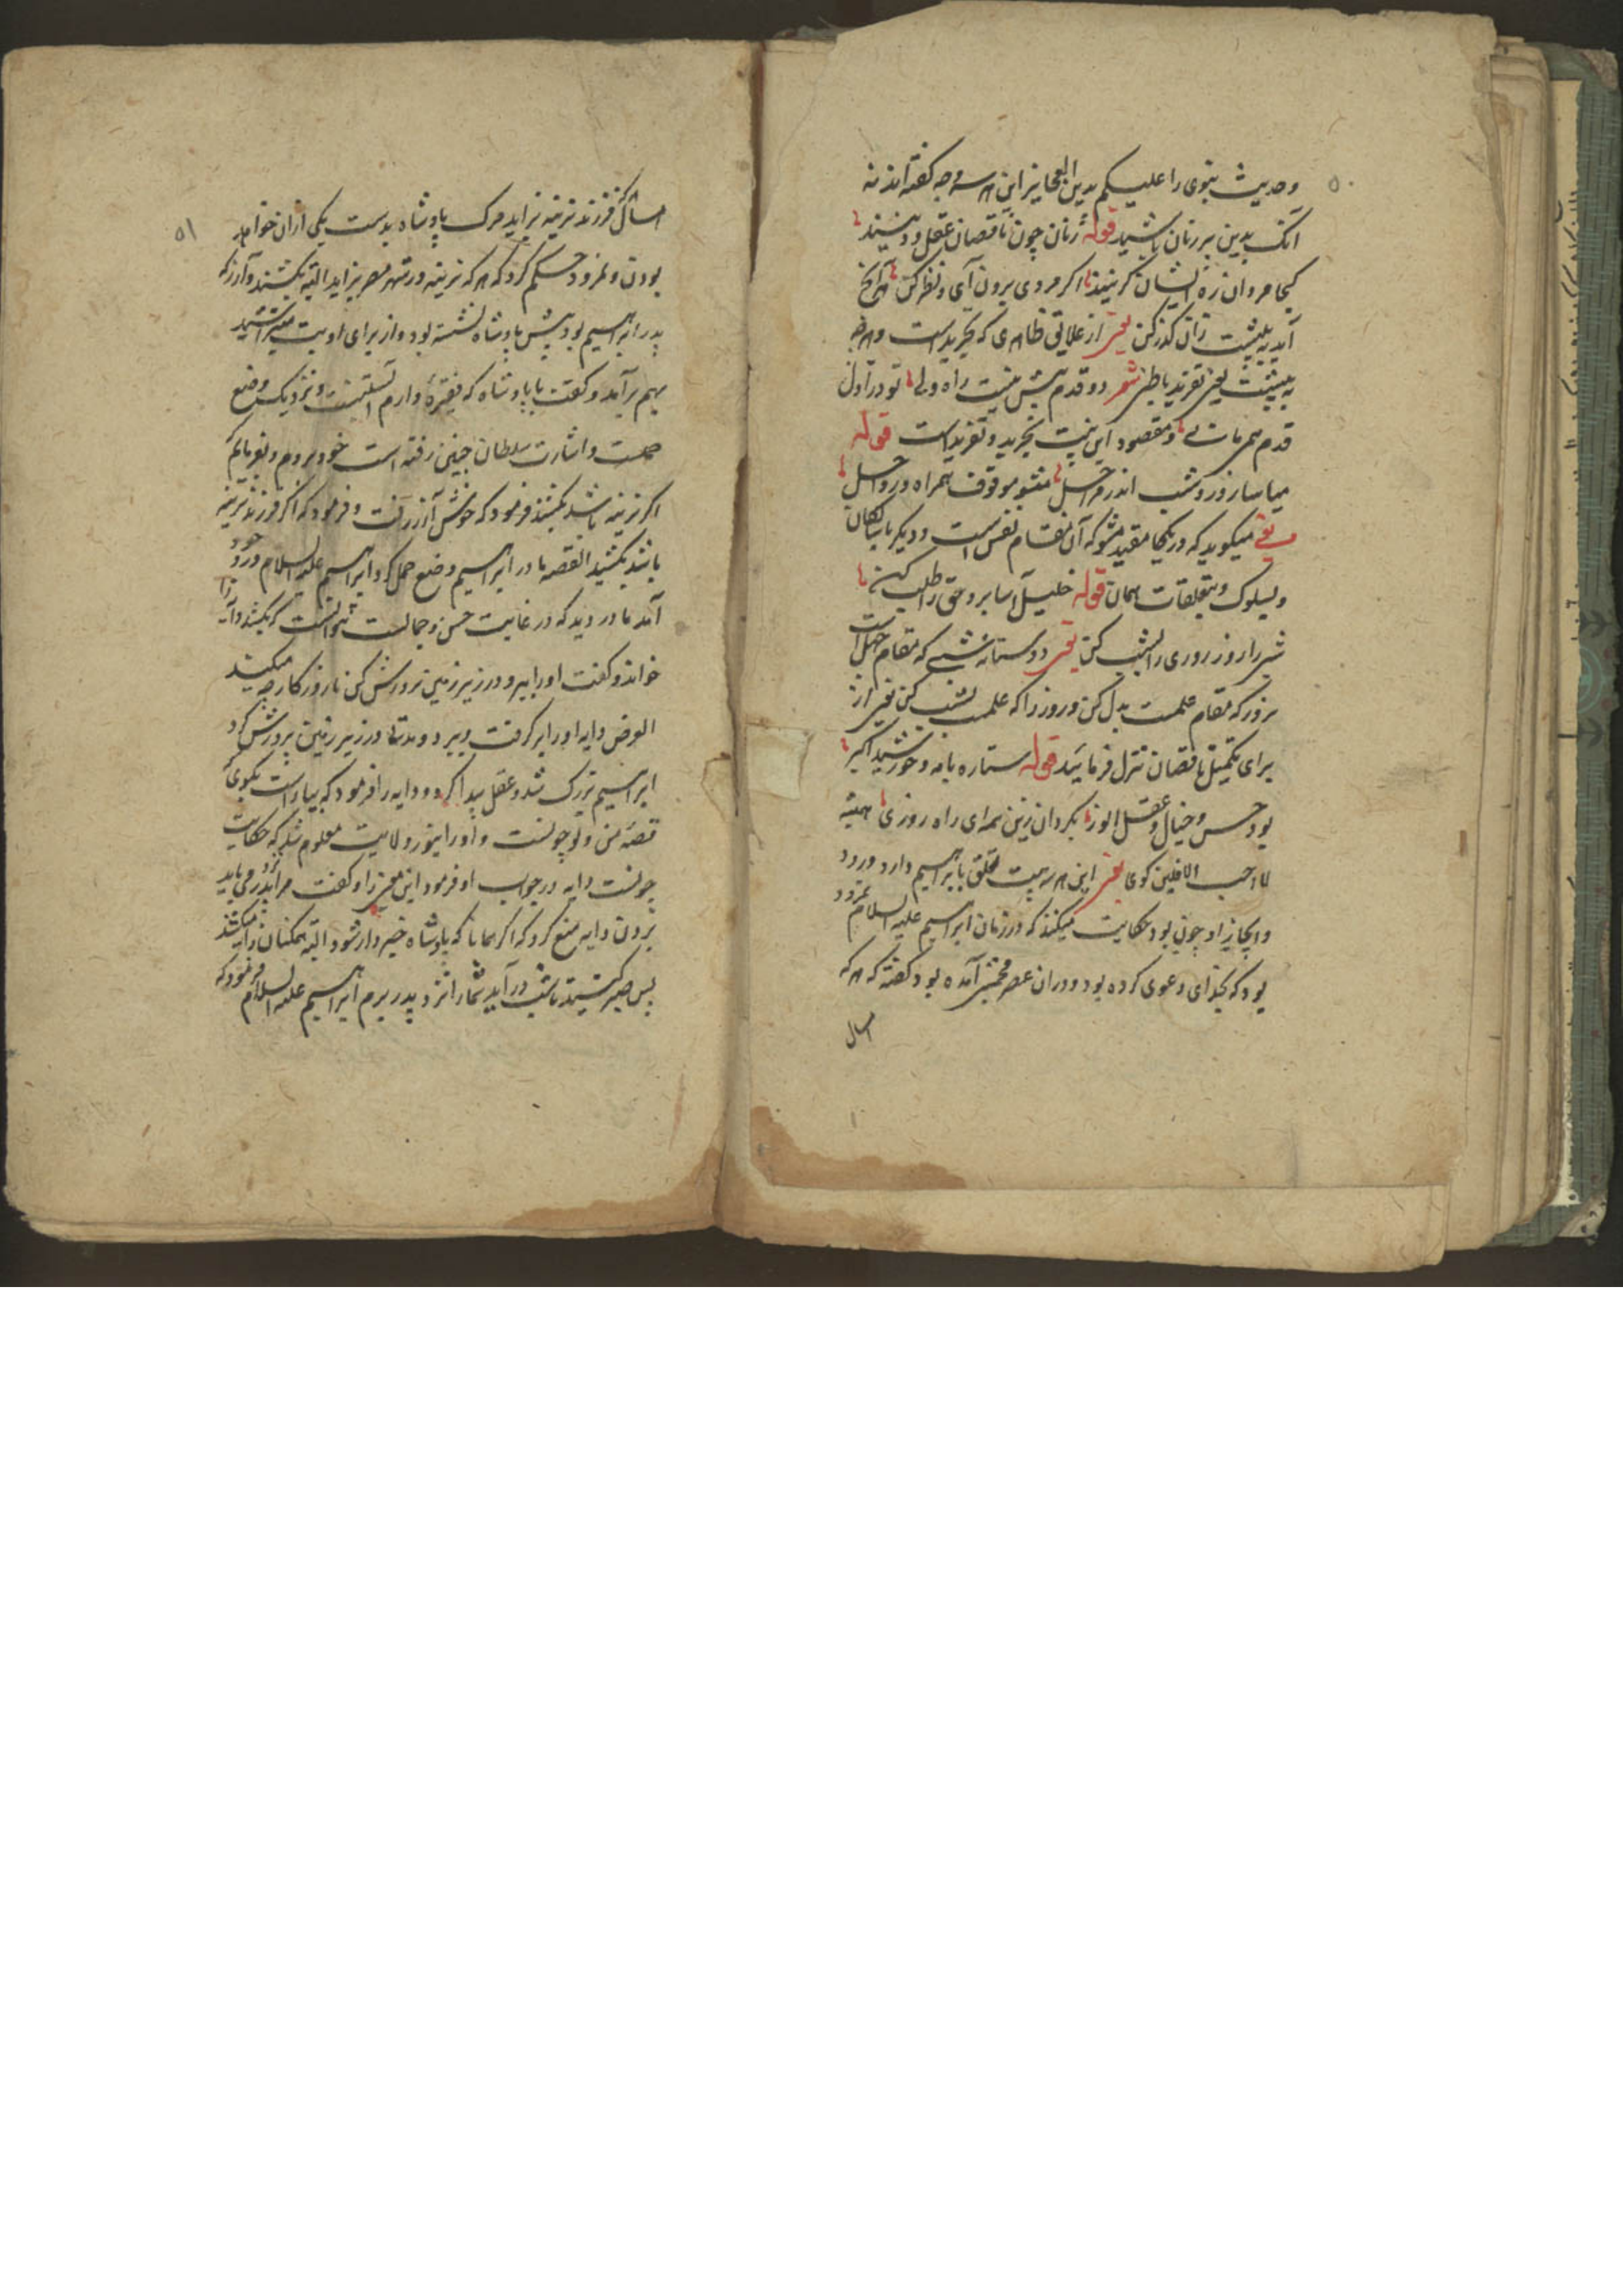 ۵۰
وحدیث نبوی را علیکم بدین العجایز این هر سه وجه گفته اند نه
آنک بدین پیرزنان باشید قوله زنان چون ناقصان عقل و دینند
کجا مردان ره ایشان گزینند اگر مردی برون آی و نظر کن هر آنچ
آید به پیشت زان گذر کن یعنی از علایق ظاهری که تجریدست و هرچه
به پیشت یعنی تفرید باطن شعر دو قدم بیش نیست راه ولی تو در اول
قدم همی مانی و مقصود این بیت تجرید و تفرید است قوله
میاسا روز و شب اندر مراحل مشو موقوف همراه و رواحل
یعنی میگوید که در یکجا مقید مشو که آن مقام نفس است و دیگر
وسلوک و متعلقات همان قوله خلیل آسا برو حق را طلب کن
شبی را روز و روزی را بشب کن یعنی شبی که مقام جهل است
بروز که مقام علمست بدل کن و روز را که علمست بشب کن یعنی از
برای تکمیل ناقصان تنزل فرمایید قوله ستاره با مه و خورشید اکبر
بود حس و خیال و عقل انور بگردان زین همه ای راه رو روی همیشه
لا احب الافلین گوی یعنی این هر سه بیت تعلق بابراهیم دارد و
و ایجازا چون بود حکایت میکنند که در زمان ابراهیم علیه السلام نمرود
بود که خدای دعوی کرده بود و در آن عصر منجمی آمده بود گفته که هر که
امسال
۵۱
امسال فرزند نرینه بزاید مرک پادشاه بدست یکی ازان خواهد
بودن و نمرود حکم کرد که هر که نرینه در شهر بزاید البته بکشند و آزر که
پدر ابراهیم بود پیش پادشاه نشسته بود و از برای او بت میتراشید
بهم برآمد و گفت با پادشاه که فقیره دارم آبستنست و نزدیک وضع
حملست و اشارت سلطان چنین رفته است خود بروم و بفرمایم
اگر نرینه باشد بکشند فرمود که خوش آزر رفت و فرمود که اگر فرزند نرینه
باشد بکشید القصه مادر ابراهیم وضع حمل کرد ابراهیم علیه السلام در وجود
آمد مادر دید که در غایت حسن و جمالست نتوانست که بکشد دایه را
خواند و گفت او را ببر و در زیر زمین پرورش کن تا روزگار چه میکند
الغرض دایه او را برگرفت و ببرد و مدتها در زیر زمین پرورش کرد
ابراهیم بزرگ شد و عقل پیدا کرد و دایه را فرمود که بیا راست بگوی که
قصهٔ من و تو چونست و او را بنور ولایت معلوم شد که حکایت
چونست دایه در جواب او فرمود این معنی را و گفت مرا برون می باید
برون دایه منع کرد که اگر همانا که پادشاه خبردار شود البته همگنان را میکشد
پس صبر کنید تا شب درآید شما را نزد پدر برم ابراهیم علیه السلام فرمود که